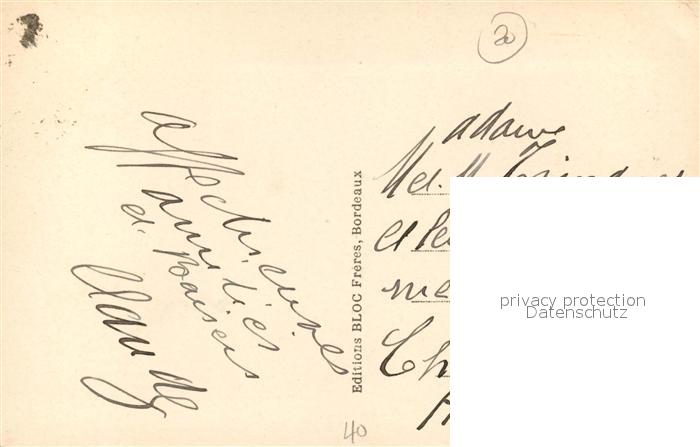 20
affectueuses
amitiés
et baisers
Claude
Editions BLOC Frères, Bordeaux
adame
M et M
et
Ch
40
privacy protection
Datenschutz